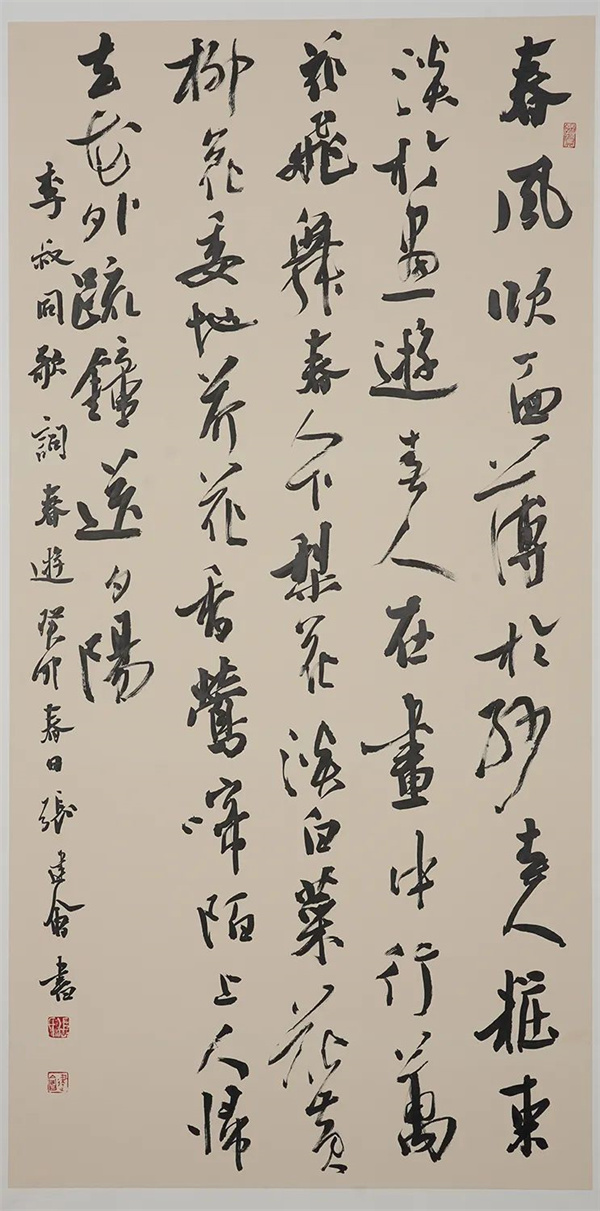 春風吹面薄於紗春人粧束
淡於畫遊春人在畫中行萬
花飛舞春人下梨花淡白菜花黃
柳花委地芥花香鶯啼陌上人歸
去花外疏鐘送夕陽
李叔同歌詞春遊癸卯春日張建會書